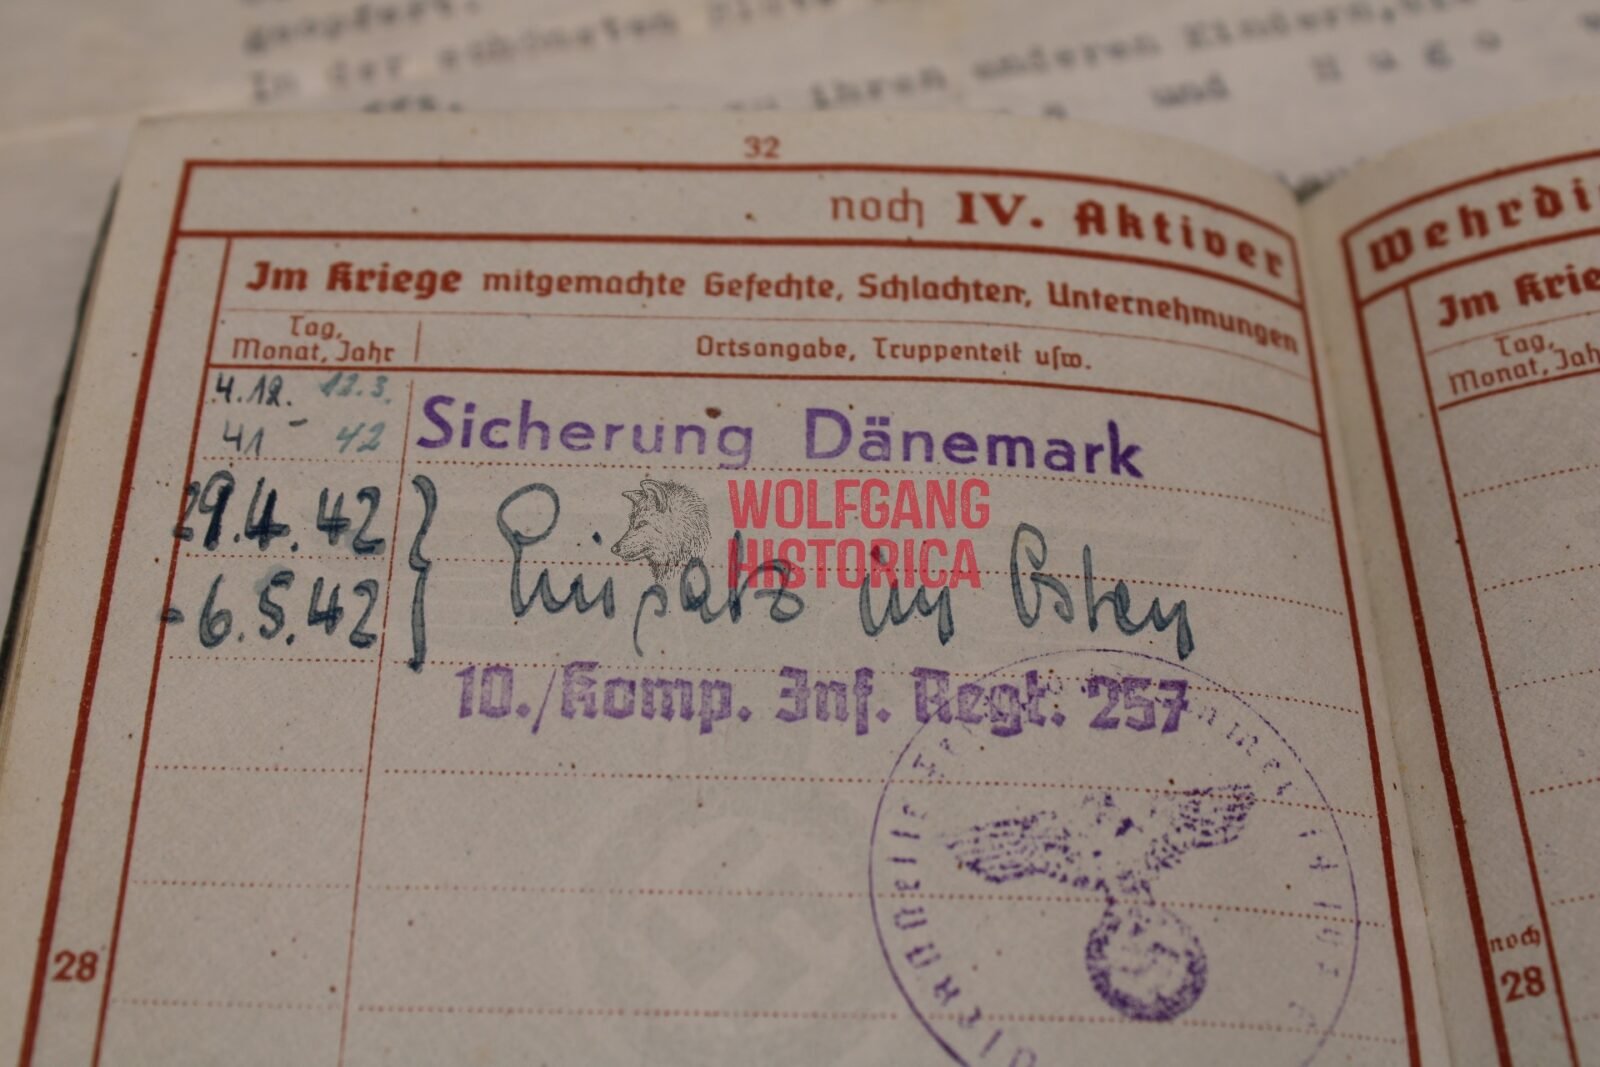 geopfert.
In der schönsten Blüte
ihren anderen Kindern,
und Hugo
32
noch IV. Aktiver
Wehrdi
Im Kriege mitgemachte Gefechte, Schlachten, Unternehmungen
Im Krie
Tag,
Monat, Jahr
Ortsangabe, Truppenteil usw.
Tag,
Monat, Jah
4.12. 12.3.
41 - 42
Sicherung Dänemark
29.4.42
- 6.5.42
} Einsatz im Osten
WOLFGANG
HISTORICA
10./Komp. Inf. Regt. 257
Dienststelle Feldpostnummer
28
noch
28